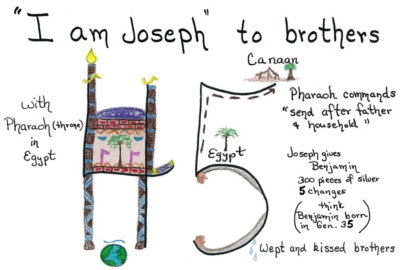 "I am Joseph" to brothers
Canaan
with
Pharaoh (throne)
in
Egypt
Pharaoh commands
"send after father
& household"
Egypt
Joseph gives
Benjamin
300 pieces of silver
5 changes
(think
Benjamin born
in Gen. 35)
Wept and kissed brothers